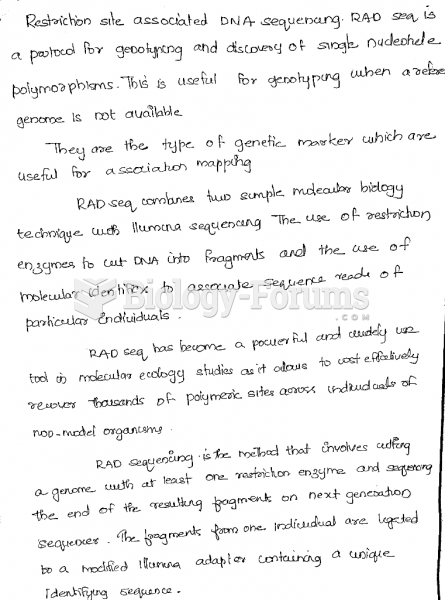 Restriction site associated DNA sequencing. RAD seq is
a protocol for genotyping and discovery of single nucleotide
polymorphisms. This is useful for genotyping when a refere
genome is not available
They are the type of genetic marker which are
useful for association mapping
RAD seq combines two simple molecular biology
technique with Illumina sequencing The use of restriction
enzymes to cut DNA into fragments and the use of
molecular to associate sequence reads of
particular individuals.
Biology-Forums
.COM
RAD seq has become a powerful and widely use
tool in molecular ecology studies as it allows to cost effectively
recover thousands of polymeric sites across individuals of
non-model organisms.
RAD sequencing is the method that involves cutting
a genome with at least one restriction enzyme and sequencing
the end of the resulting fragments on next generation
sequencer. The fragments from one individual are ligated
to a modified Illumina adapter containing a unique
identifying sequence.